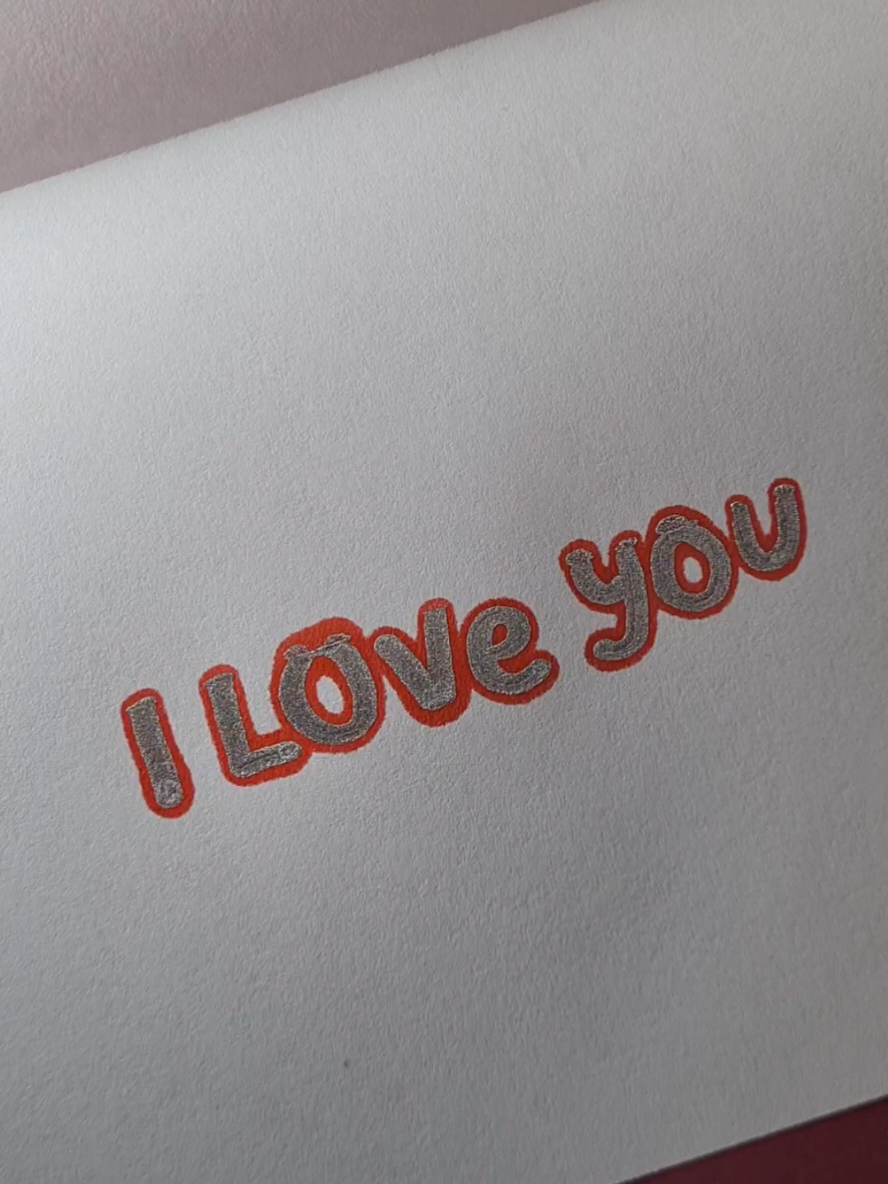 I LOve yOU